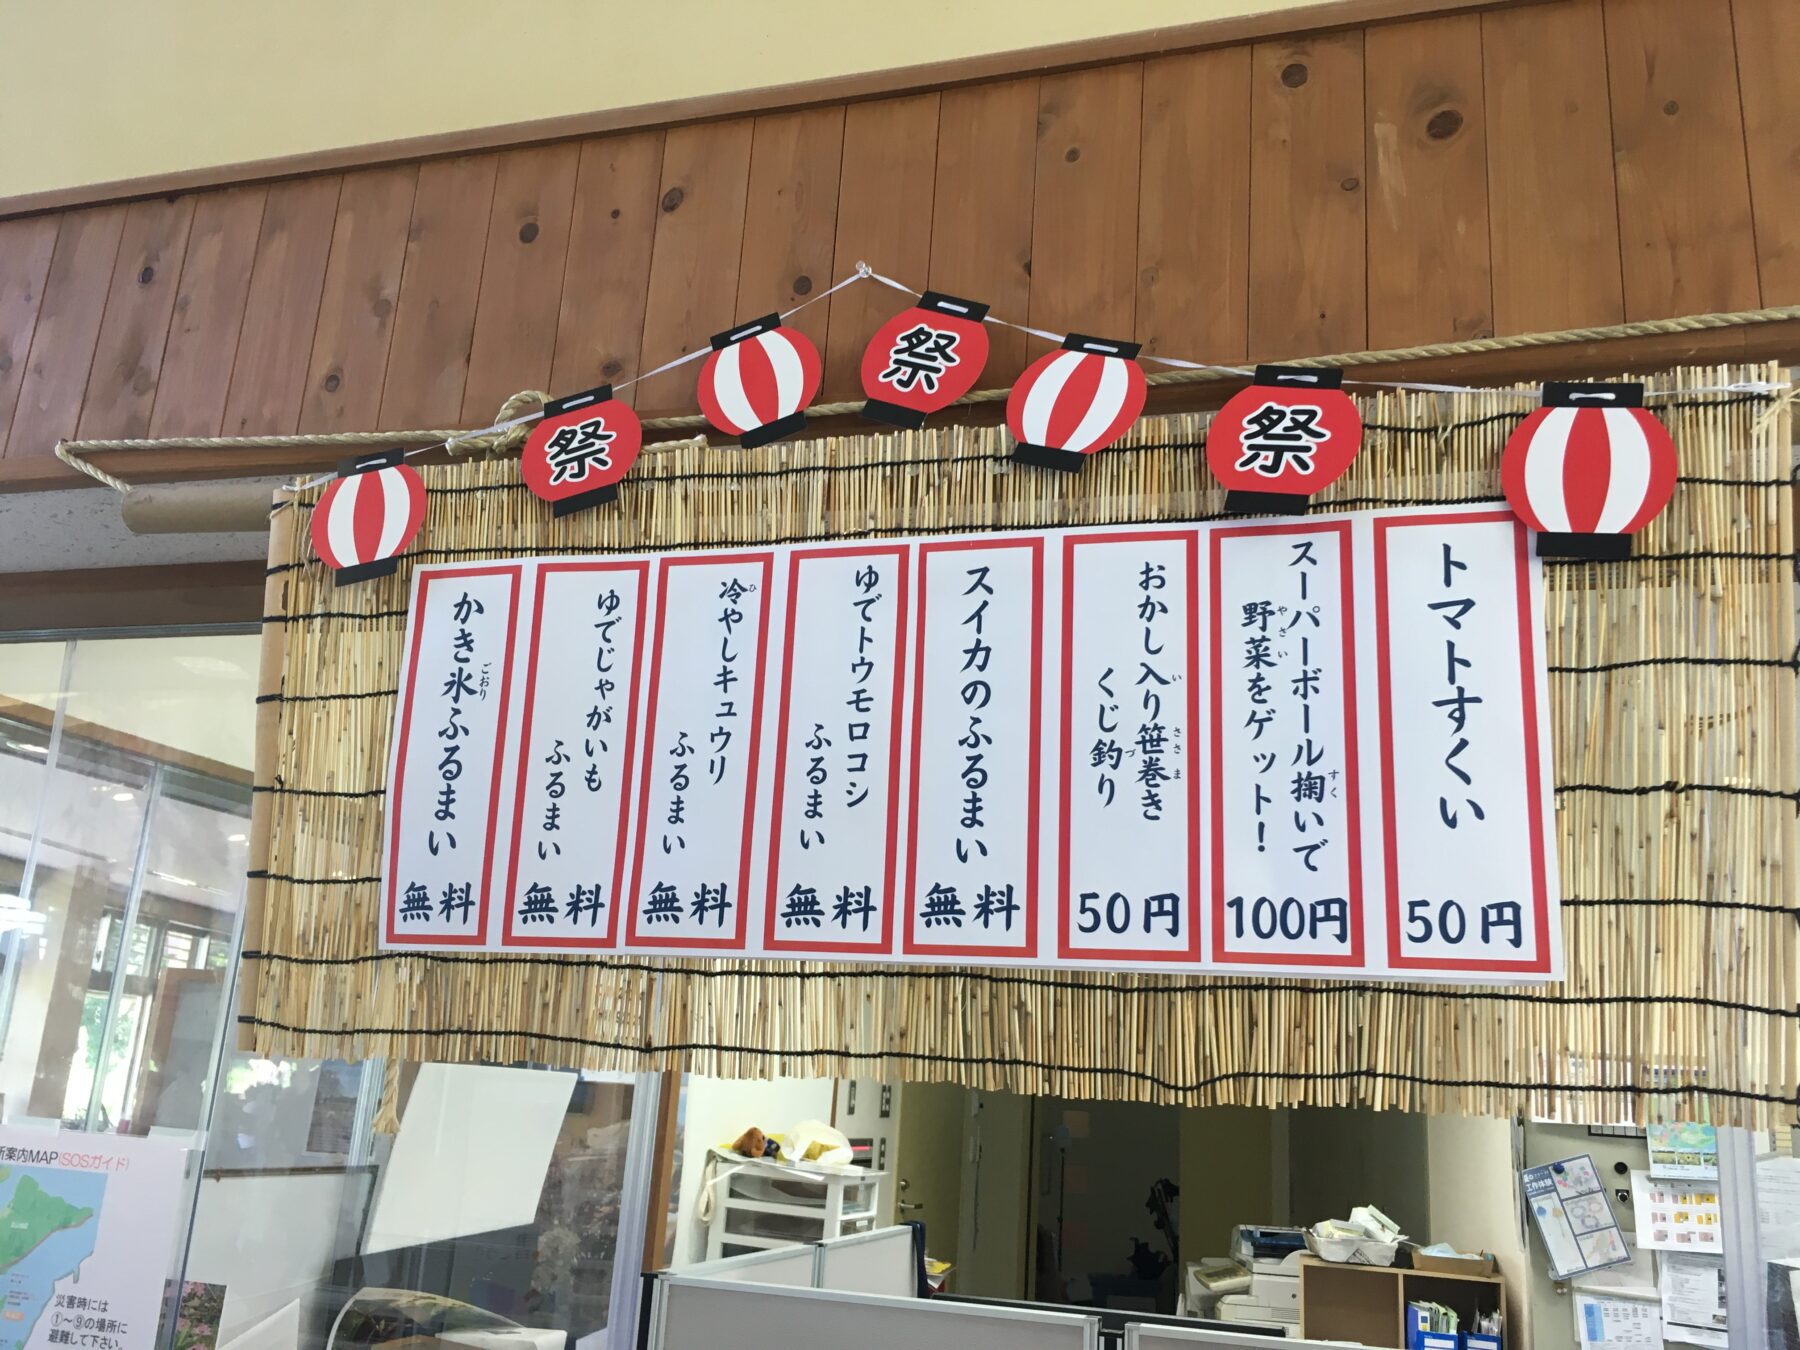 祭
祭
祭
トマトすくい
50円
スーパーボール掬いで
すく
野菜をゲット!
やさい
100円
おかし入り笹巻き
い ささま
くじ釣り
づ
50円
スイカのふるまい
無料
ゆでトウモロコシ
ふるまい
無料
冷やしキュウリ
ひ
ふるまい
無料
ゆでじゃがいも
ふるまい
無料
かき氷ふるまい
ごおり
無料
所案内MAP(SOSガイド)
災害時には
①~⑨の場所に
避難して下さい。
工作体験